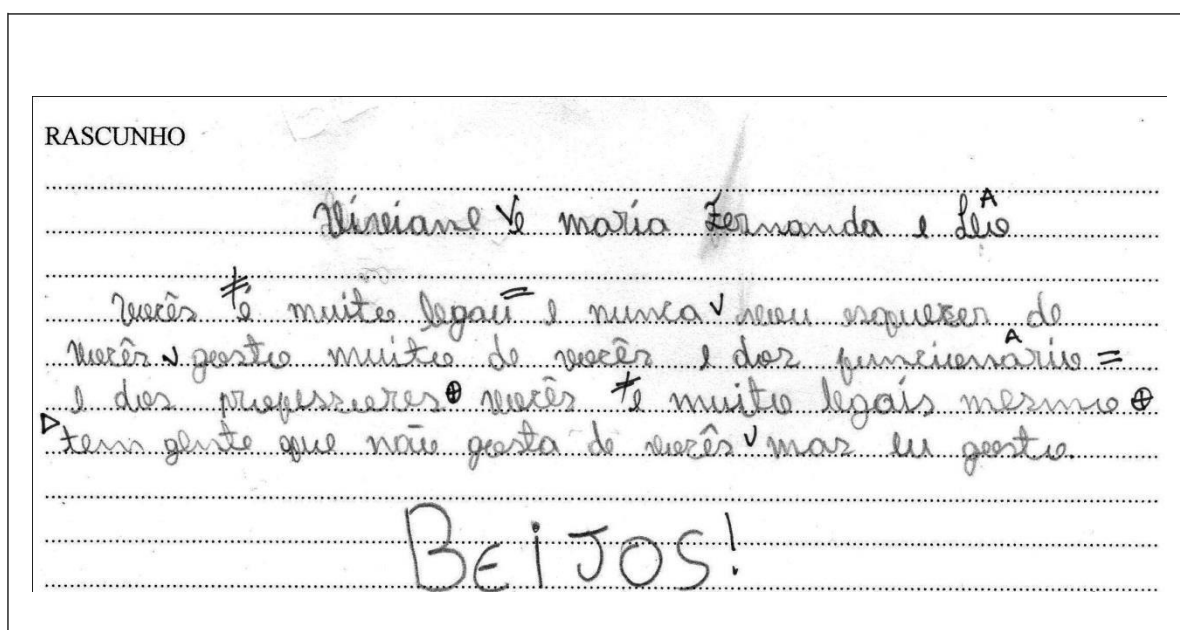 RASCUNHO
Viviane e maria Fernanda e Léo
vocês é muito legau e nunca vou esquecer de
vocês gosto muito de vocês e dos funcionário
e dos professores vocês é muito legais mesmo
tem gente que não gosta de vocês mas eu gosto.
BEIJOS!